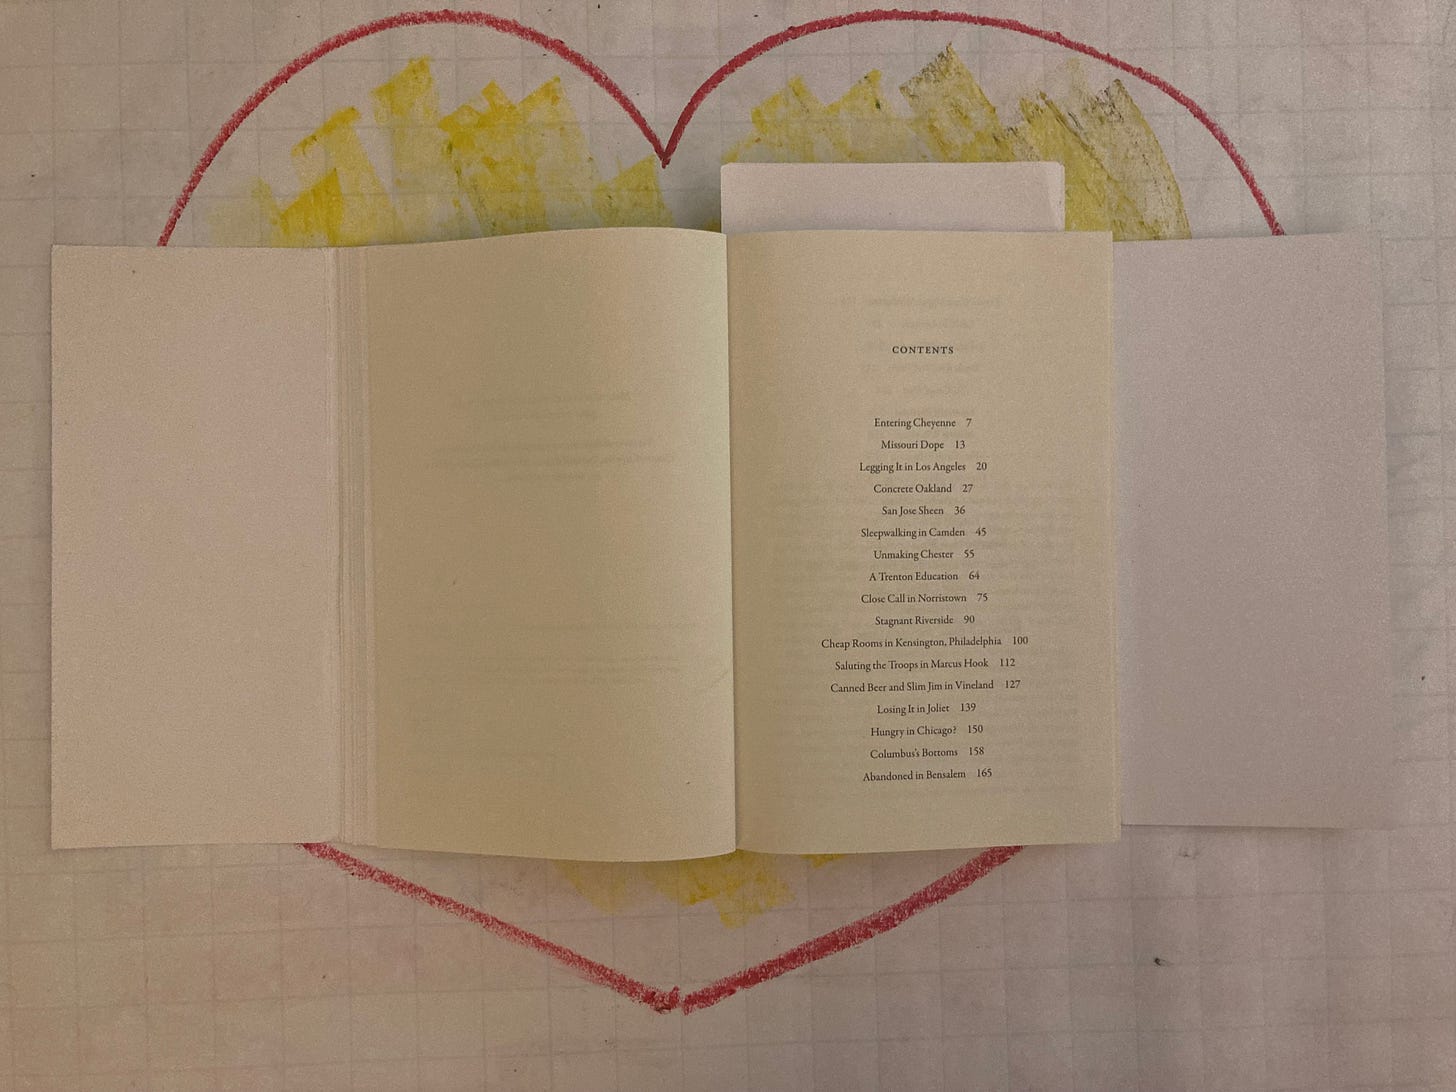 CONTENTS
Entering Cheyenne 7
Missouri Dope 13
Legging It in Los Angeles 20
Concrete Oakland 27
San Jose Sheen 36
Sleepwalking in Camden 45
Unmaking Chester 55
A Trenton Education 64
Close Call in Norristown 75
Stagnant Riverside 90
Cheap Rooms in Kensington, Philadelphia 100
Saluting the Troops in Marcus Hook 112
Canned Beer and Slim Jim in Vineland 127
Losing It in Joliet 139
Hungry in Chicago? 150
Columbus's Bottoms 158
Abandoned in Bensalem 165